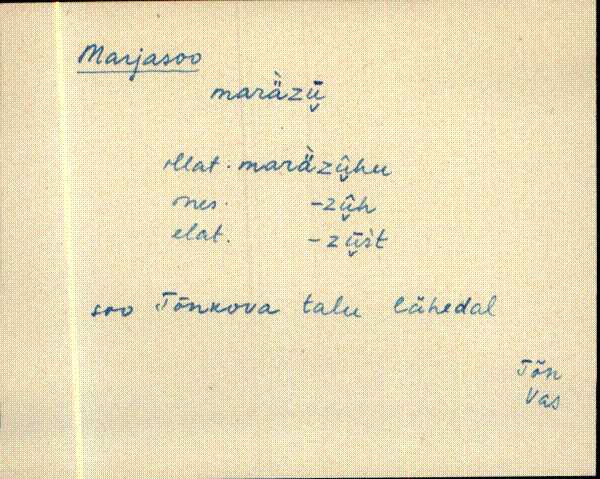 Marjasoo
maràzṷ̄
illat. maràzṷ̂hu
ines. -zṷ̂h
elat. -zṷ̄śt
soo Tõnkova talu lähedal
Tõn
Vas